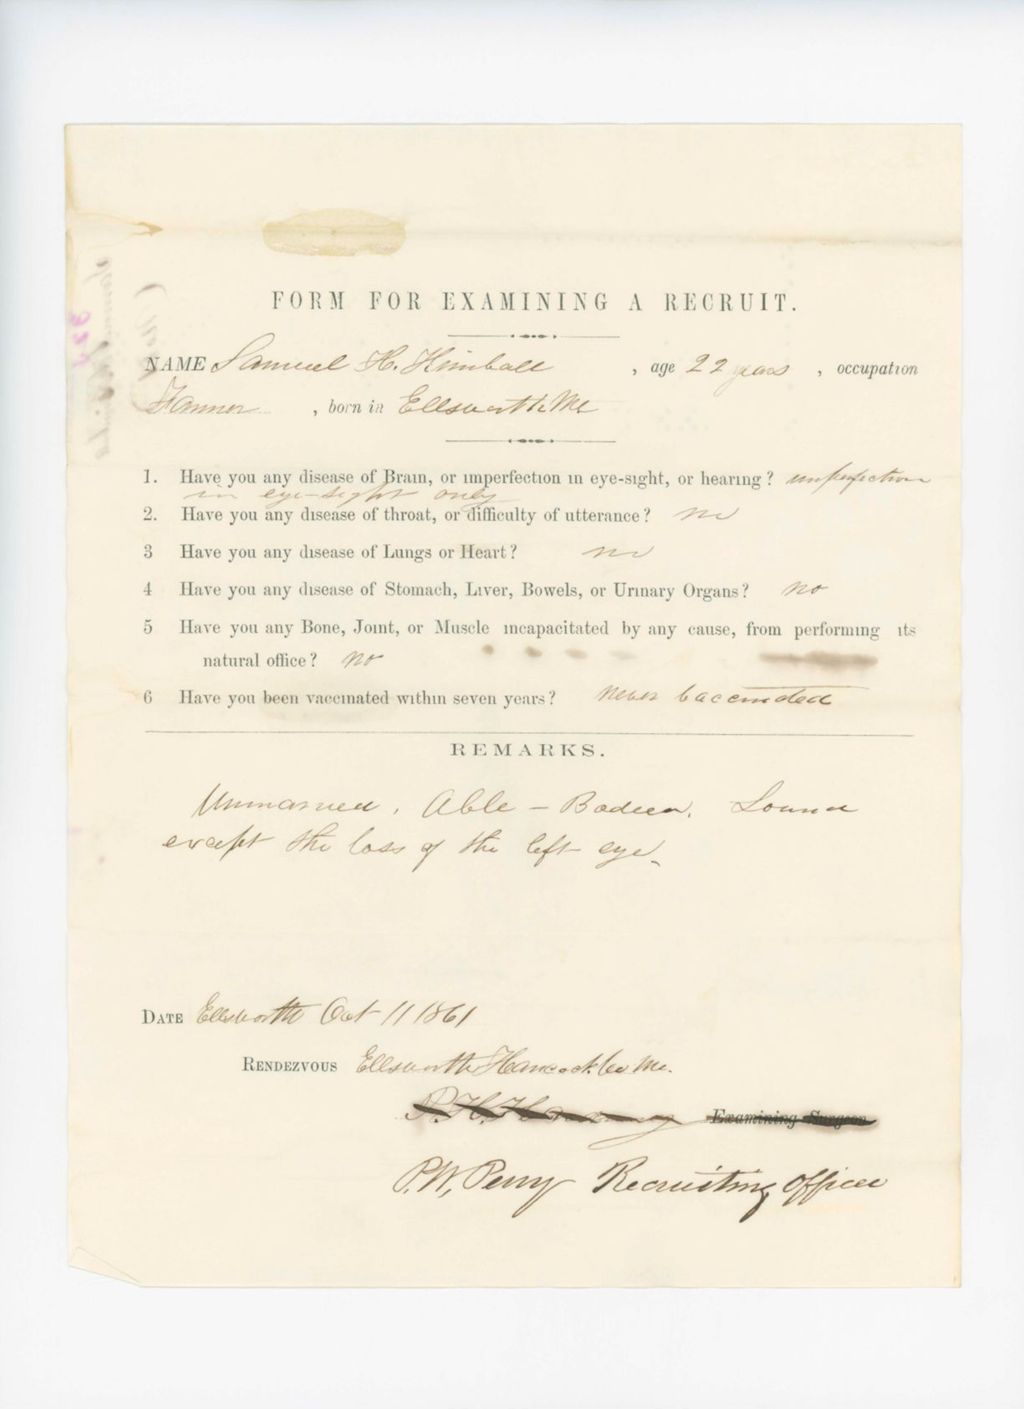 FORM FOR EXAMINING A RECRUIT.
NAME Samuel H. Kimball , age 22 years , occupation
Farmer , born in Ellsworth Me
1. Have you any disease of Brain, or imperfection in eye-sight, or hearing? imperfection
in eye-sight only
2. Have you any disease of throat, or difficulty of utterance? no
3 Have you any disease of Lungs or Heart? no
4 Have you any disease of Stomach, Liver, Bowels, or Urinary Organs? no
5 Have you any Bone, Joint, or Muscle incapacitated by any cause, from performing its
natural office? no
6 Have you been vaccinated within seven years? never vaccinated
REMARKS.
Unmarried, Able-Bodied, Sound
except the loss of the left eye.
DATE Ellsworth Oct 11 1861
RENDEZVOUS Ellsworth Hancock Co Me.
Examining Surgeon
P.W. Perry Recruiting Officer